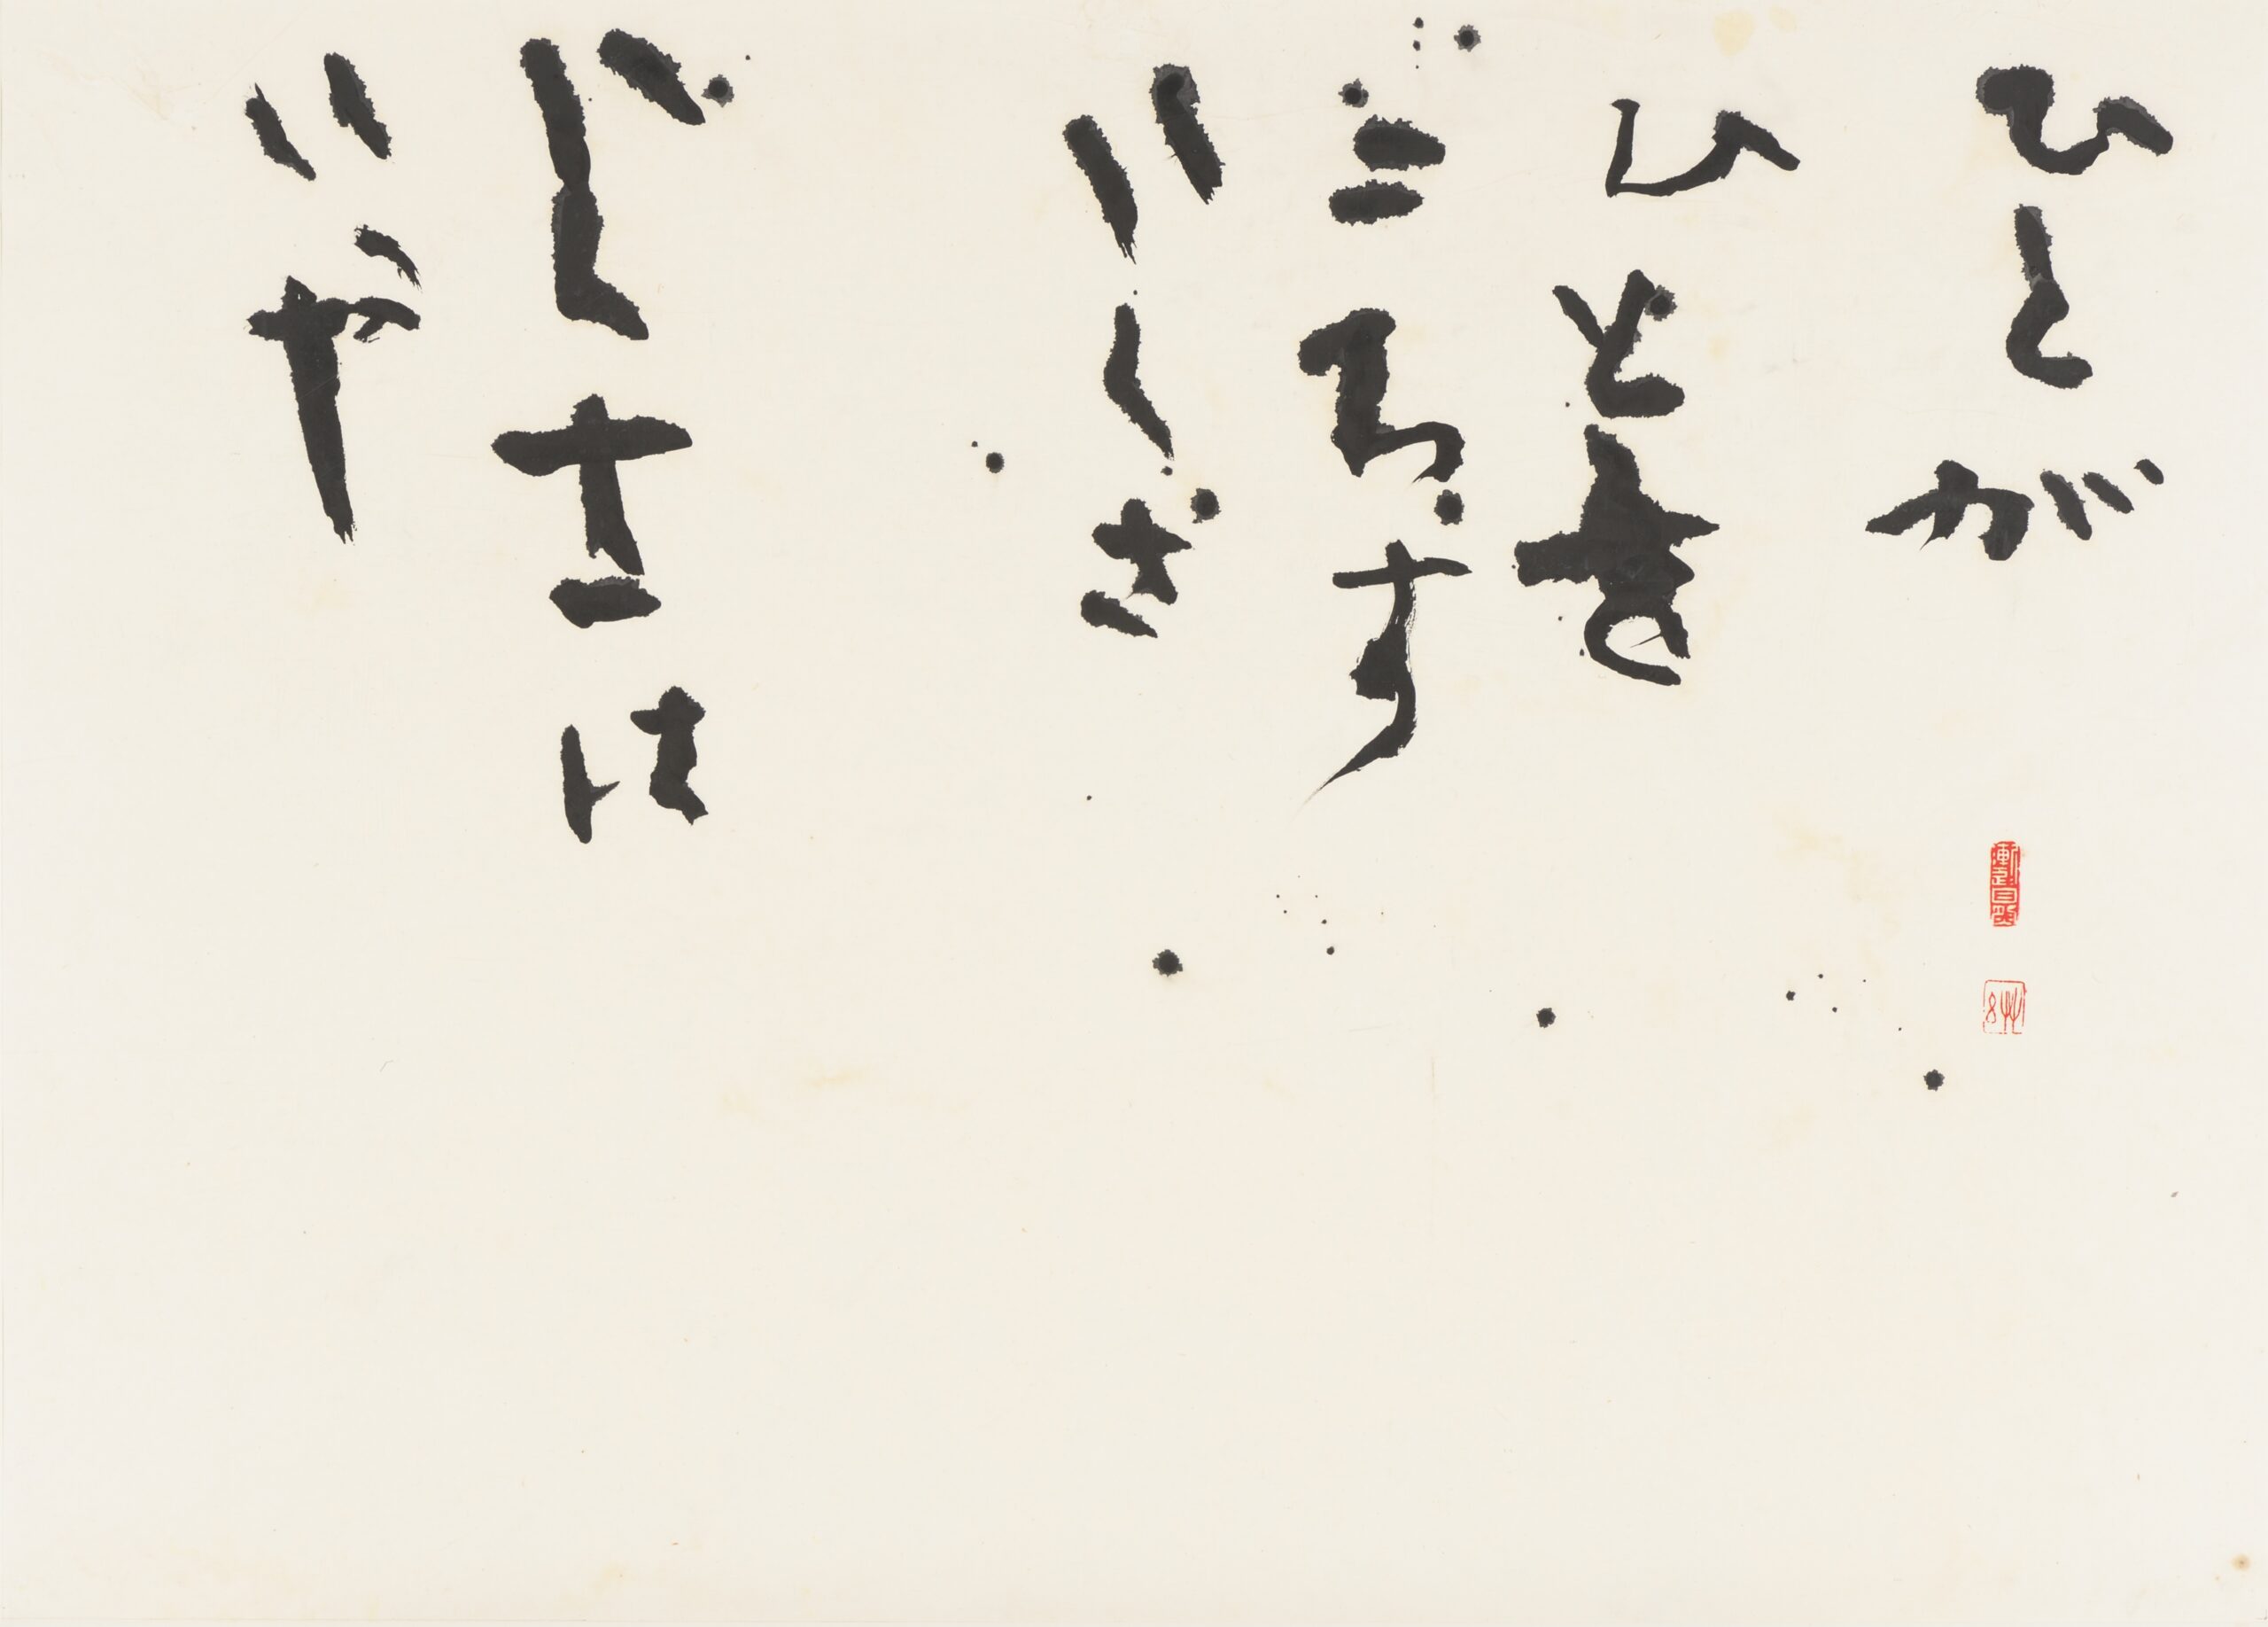 ひとが
ひとを
ころす
いくさ
いくさは
いや